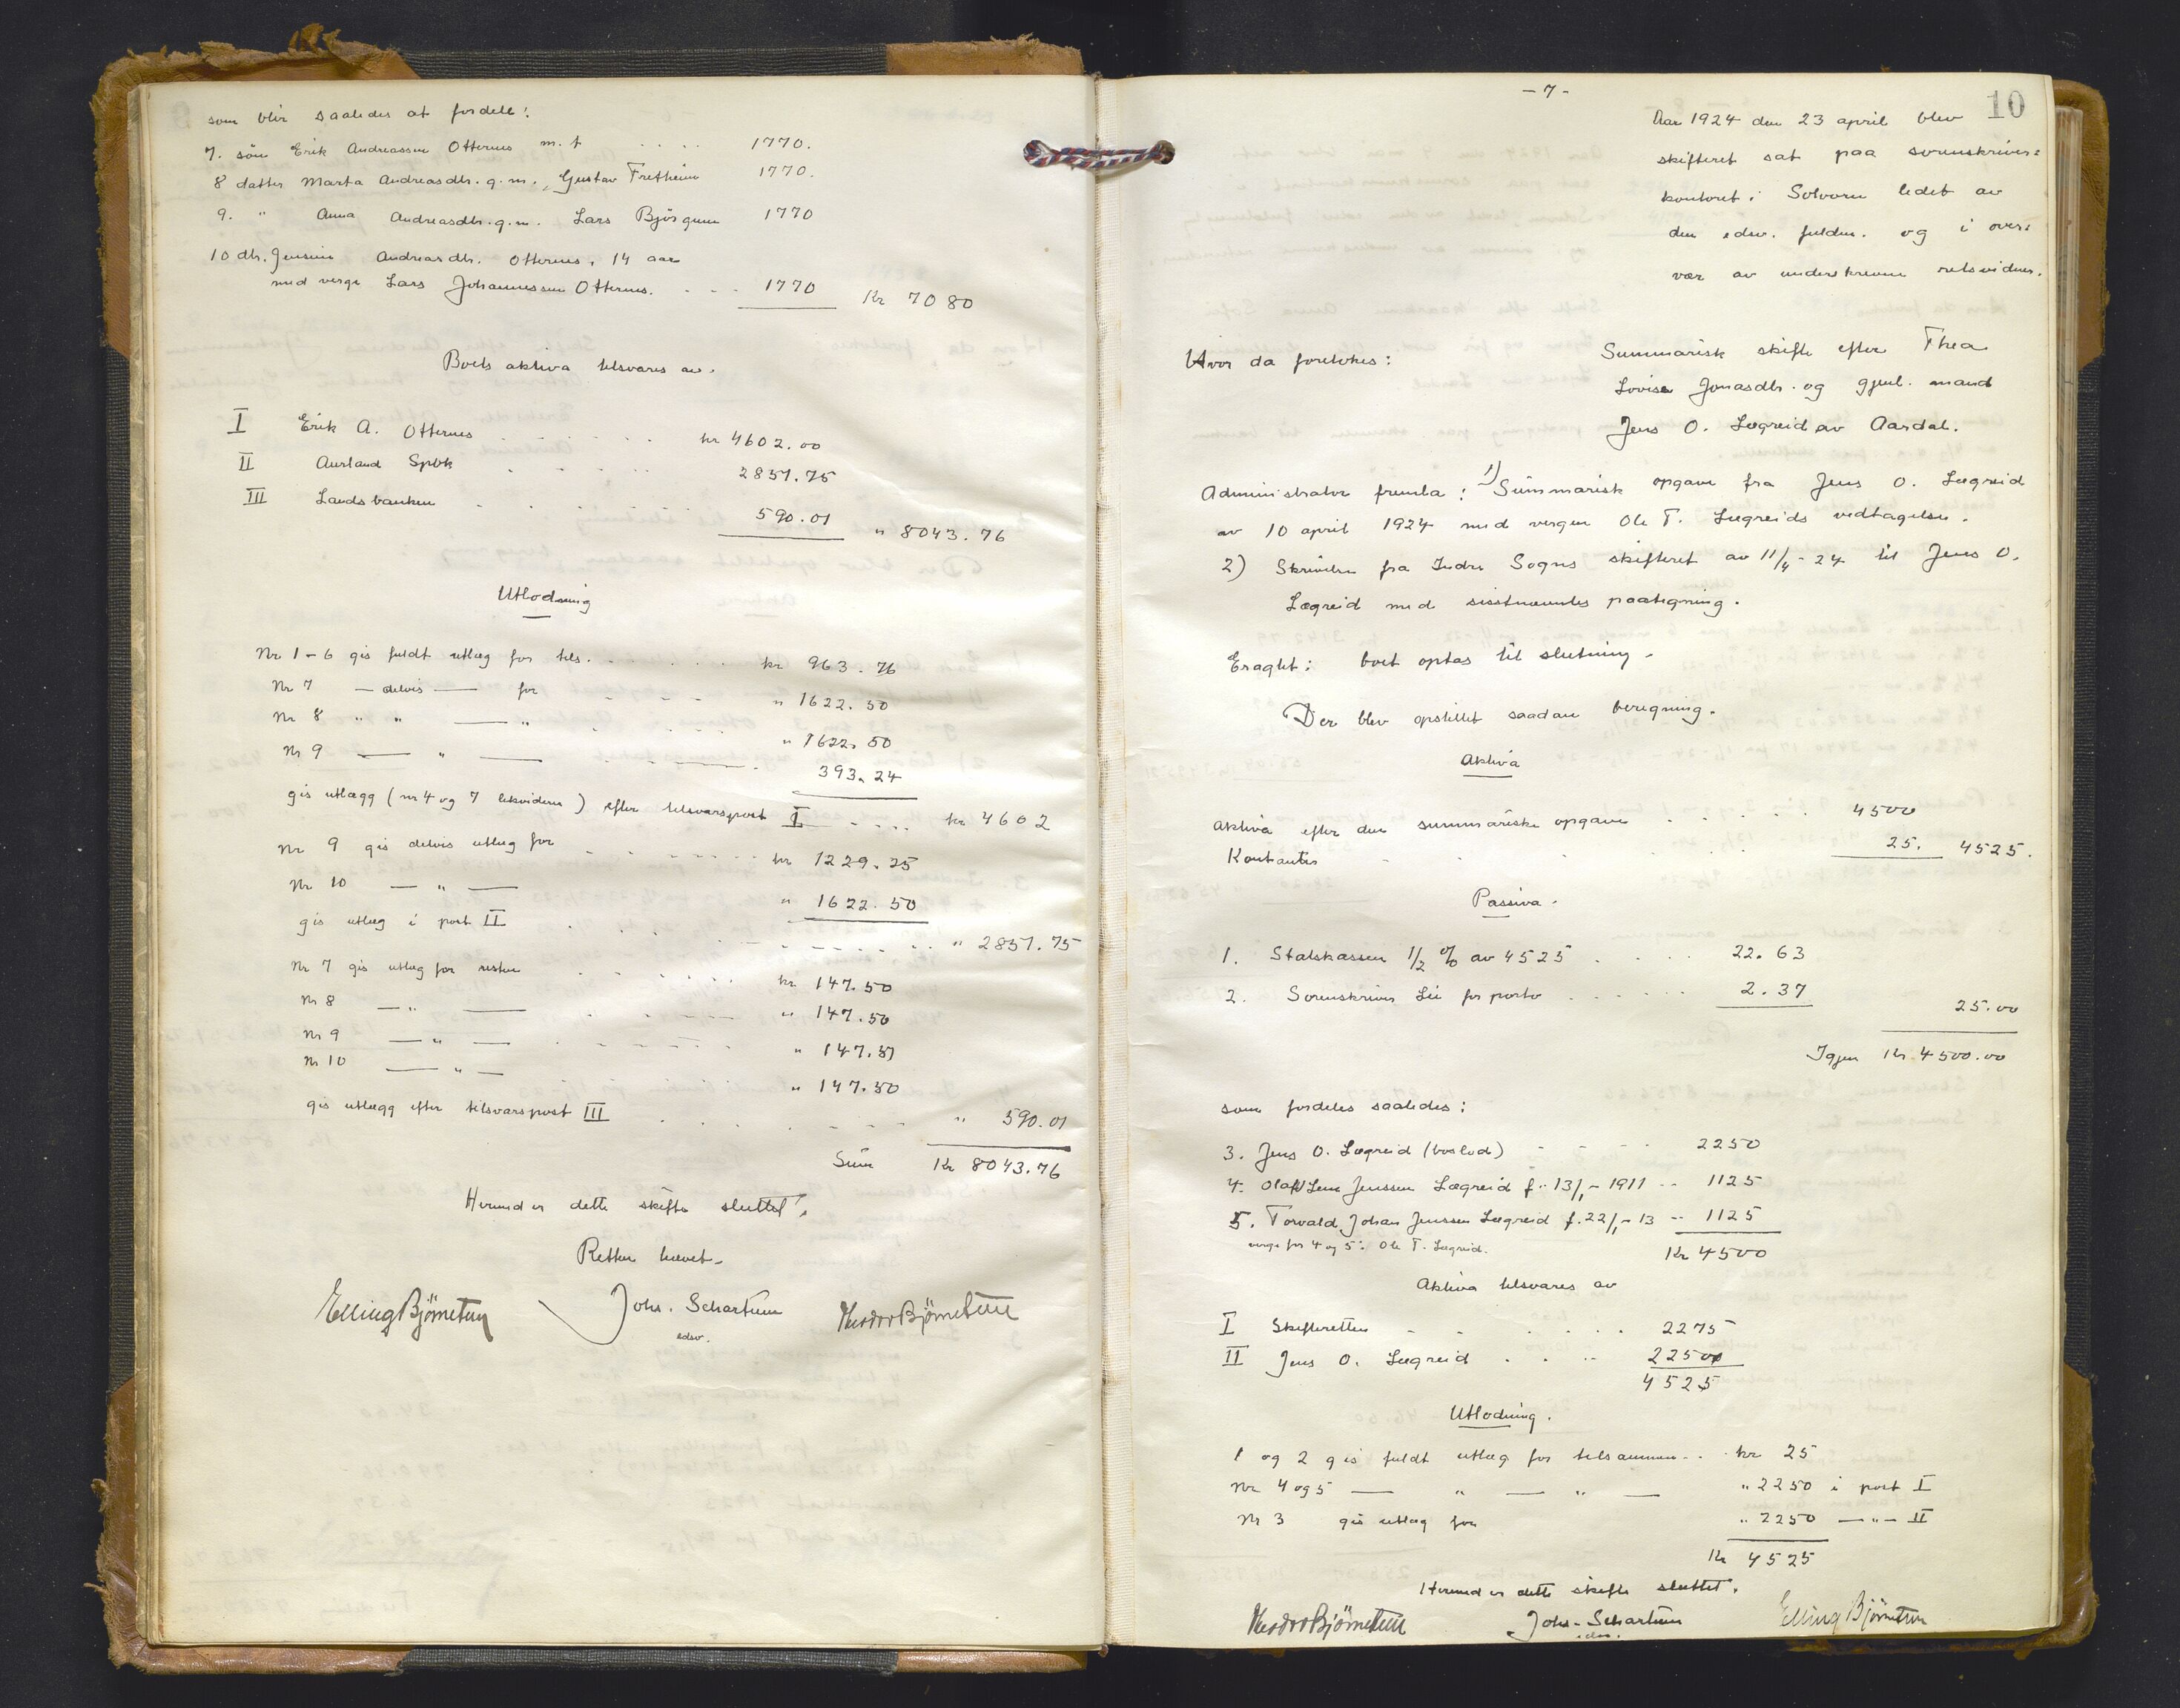 som blir saaledes at fordele:
7. sön Erik Andreassen Otternes m. f .... 1770.
8 datter Marta Andreasdtr. g. m. Gustav Fretheim 1770.
9. " Anna Andreasdtr. g. m. Lars Bjørgum 1770
10 dtr. Jensine Andreasdtr. Otternes, 14 aar
med verge Lars Johannessen Otternes. - - - 1770 Kr 7080
Boets aktiva tilsvares av.
I Erik A. Otternes . . . . . . kr 4602.00
II Aurland Spbk . . . . . 2851.75
III Landsbanken . . . . . . 590.01 " 8043.76
Utlodning
Nr 1-6 gis fuldt utlæg for tils. . . . . . kr 963.76
Nr 7 — delvis — for - - - - " 1622.50
Nr 8 " " — " . . . . " 1622.50
Nr 9 — " — . . 393.24
gis utlægg (nr 4 og 7 likviderer) efter tilsvarspost I - . . . kr 4602
Nr 9 gis delvis utlæg for - - - - - - kr 1229.25
Nr 10 — " — " 1622.50
gis utlæg i post II . . . . - - - - - " 2851.75
Nr 7 gis utlæg for resten . . . . . kr 147.50
Nr 8 — " — . . . . " 147.50
Nr 9 — " — . . . . " 147.51
Nr 10 — " — " 147.50
gis utlægg efter tilsvarspost III . . . . . . " 590.01
Sum Kr 8043.76
Hermed er dette skifte sluttet.
Retten hævet.
Elling Bjørnetun Johs. Schartum Theodor Bjørnetun
edsv.
- 7 - 10
Aar 1924 den 23 april blev
skifteret sat paa sorenskriver=
kontoret i Solvorn ledet av
den edsv. fuldm. og i over=
vær av underskrevne retsvidner.
Hvor da foretokes: Summarisk skifte efter Thea
Lovise Jonasdtr. og gjenl. mand
Jens O. Lægreid av Aardal.
Administrator fremla: 1) Summarisk opgave fra Jens O. Lægreid
av 10 april 1924 med vergen Ole T. Lægreids vedtagelse.
2) Skrivelse fra Indre Sogns skifteret av 11/4-24 til Jens O.
Lægreid med sisstnævntes paategning.
Eragtet: boet optas til slutning.
Der blev opstillet saadan beregning.
Aktiva
Aktiva efter den summariske opgave . . . . . 4500
Kontanter - . . . . 25. 4525.
Passiva.
1. Statskassen 1/2 % av 4525 . . . . 22.63
2. Sorenskriver Lie for porto . . . . . . 2.37 25.00
Igjen Kr 4500.00
som fordeles saaledes:
3. Jens O. Lægreid (boslod) - - - - 2250
4. Olaf Lem Jenssen Lægreid f. 13/1-1911 -- 1125
5. Torvald Johan Jenssen Lægreid f. 22/1-13 -- 1125
verge for 4 og 5: Ole T. Lægreid. Kr 4500
Aktiva tilsvares av
I Skifteretten - - . . . . 2275
II Jens O. Lægreid . . -- 2250
4525
Utlodning.
1 og 2 gis fuldt utlæg for tilsammen -- kr 25
Nr 4 og 5 — " — " — " 2250 i post I
Nr 3 gis utlæg for " 2250 — " — II
Kr 4525
Hermed er dette skifte sluttet.
Theodor Bjørnetun Johs. Schartum Elling Bjørnetun
edsv.